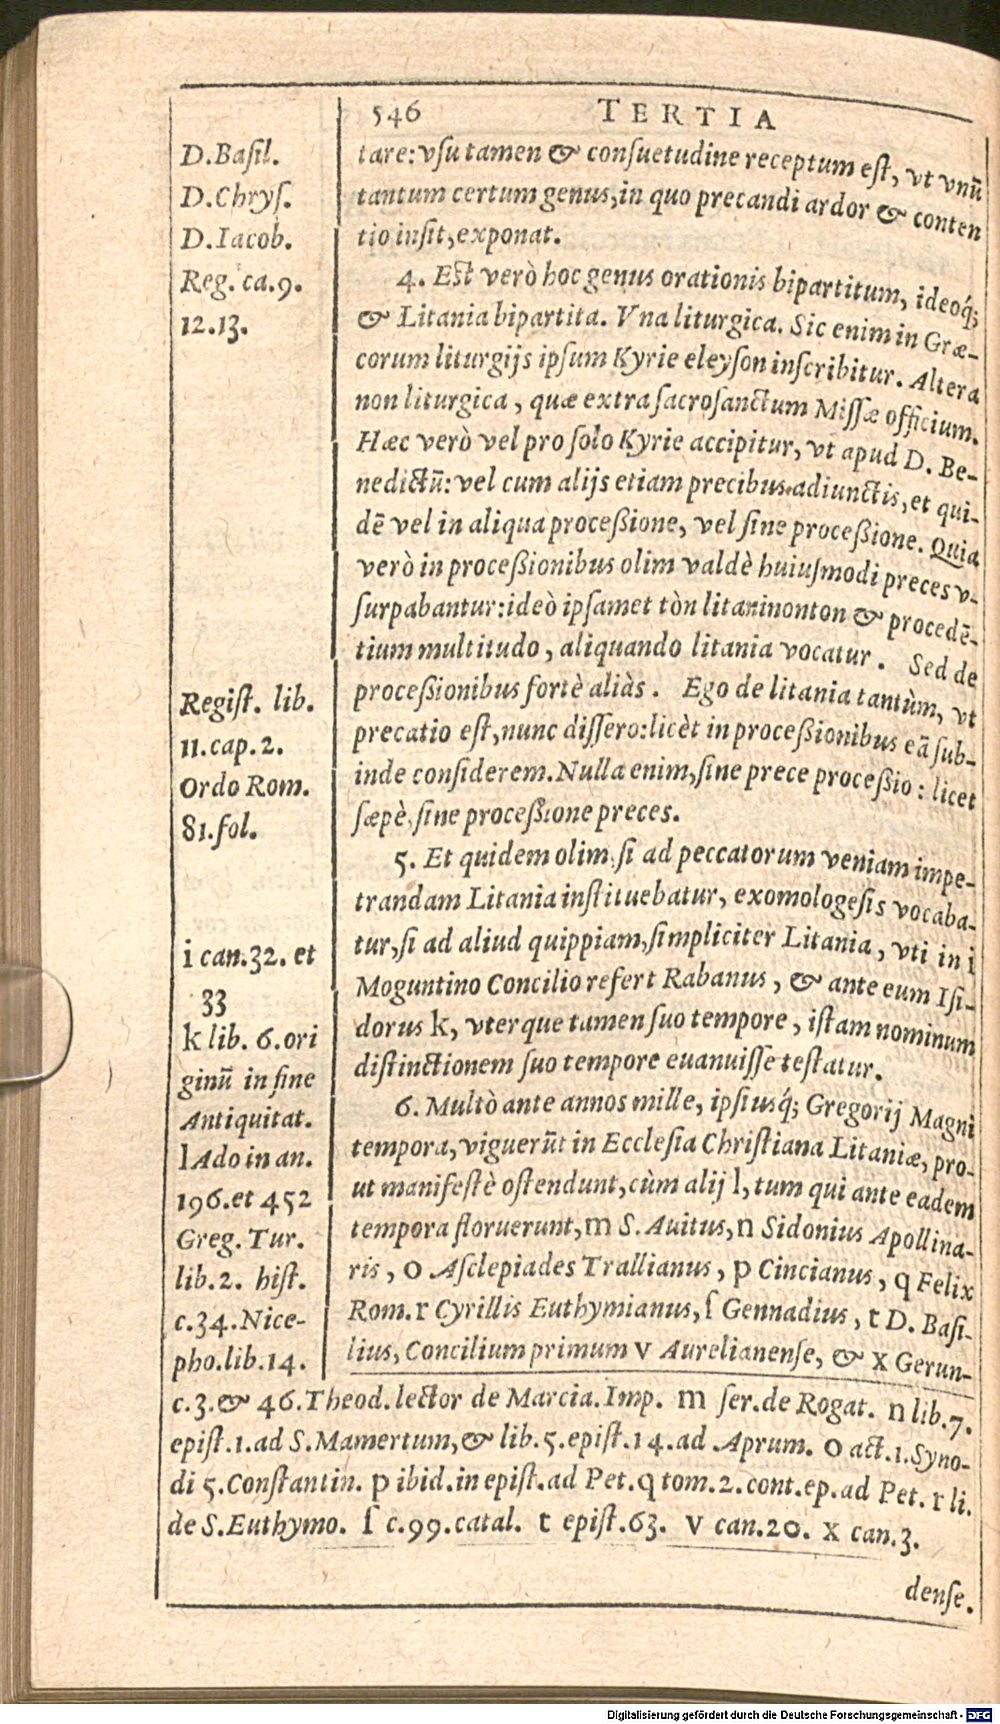 546 TERTIA
D. Basil.
D. Chrys.
D. Iacob.
Reg. ca. 9.
12. 13.
tare: vsu tamen & consuetudine receptum est, vt vnũ
tantum certum genus, in quo precandi ardor & conten
tio insit, exponat.
4. Est verò hoc genus orationis bipartitum, ideoq́;
& Litania bipartita. Vna liturgica. Sic enim in Græ-
corum liturgijs ipsum Kyrie eleyson inscribitur. Altera
non liturgica, quæ extra sacrosanctum Missæ officium.
Hæc verò vel pro solo Kyrie accipitur, vt apud D. Be-
nedictũ: vel cum alijs etiam precibus adiunctis, et qui-
dẽ vel in aliqua processione, vel sine processione. Quia
verò in processionibus olim valdè huiusmodi preces v-
surpabantur: ideò ipsamet tòn litaninonton & procedẽ-
tium multitudo, aliquando litania vocatur. Sed de
processionibus fortè aliàs. Ego de litania tantùm, vt
precatio est, nunc dissero: licèt in processionibus eã sub-
inde considerem. Nulla enim, sine prece processio: licet
sæpè, sine processione preces.
Regist. lib.
11. cap. 2.
Ordo Rom.
81. fol.
5. Et quidem olim, si ad peccatorum veniam impe-
trandam Litania instituebatur, exomologesis vocaba-
tur, si ad aliud quippiam, simpliciter Litania, vti in i
Moguntino Concilio refert Rabanus, & ante eum Isi-
dorus k, vterque tamen suo tempore, istam nominum
distinctionem suo tempore euanuisse testatur.
i can. 32. et
33
k lib. 6. ori
ginũ in fine
Antiquitat.
l Ado in an.
196. et 452
Greg. Tur.
lib. 2. hist.
c. 34. Nice-
pho. lib. 14.
6. Multò ante annos mille, ipsiusq́; Gregorij Magni
tempora, viguerũt in Ecclesia Christiana Litaniæ, pro-
ut manifestè ostendunt, cùm alij l, tum qui ante eadem
tempora floruerunt, m S. Auitus, n Sidonius Apollina-
ris, o Asclepiades Trallianus, p Cincianus, q Felix
Rom. r Cyrillis Euthymianus, ſ Gennadius, t D. Basi-
lius, Concilium primum v Aurelianense, & x Gerun-
c. 3. & 46. Theod. lector de Marcia. Imp. m ser. de Rogat. n lib. 7.
epist. 1. ad S. Mamertum, & lib. 5. epist. 14. ad Aprum. o act. 1. Syno-
di 5. Constantin. p ibid. in epist. ad Pet. q tom. 2. cont. ep. ad Pet. r li.
de S. Euthymo. ſ c. 99. catal. t epist. 63. v can. 20. x can. 3.
dense.
Digitalisierung gefördert durch die Deutsche Forschungsgemeinschaft - DFG